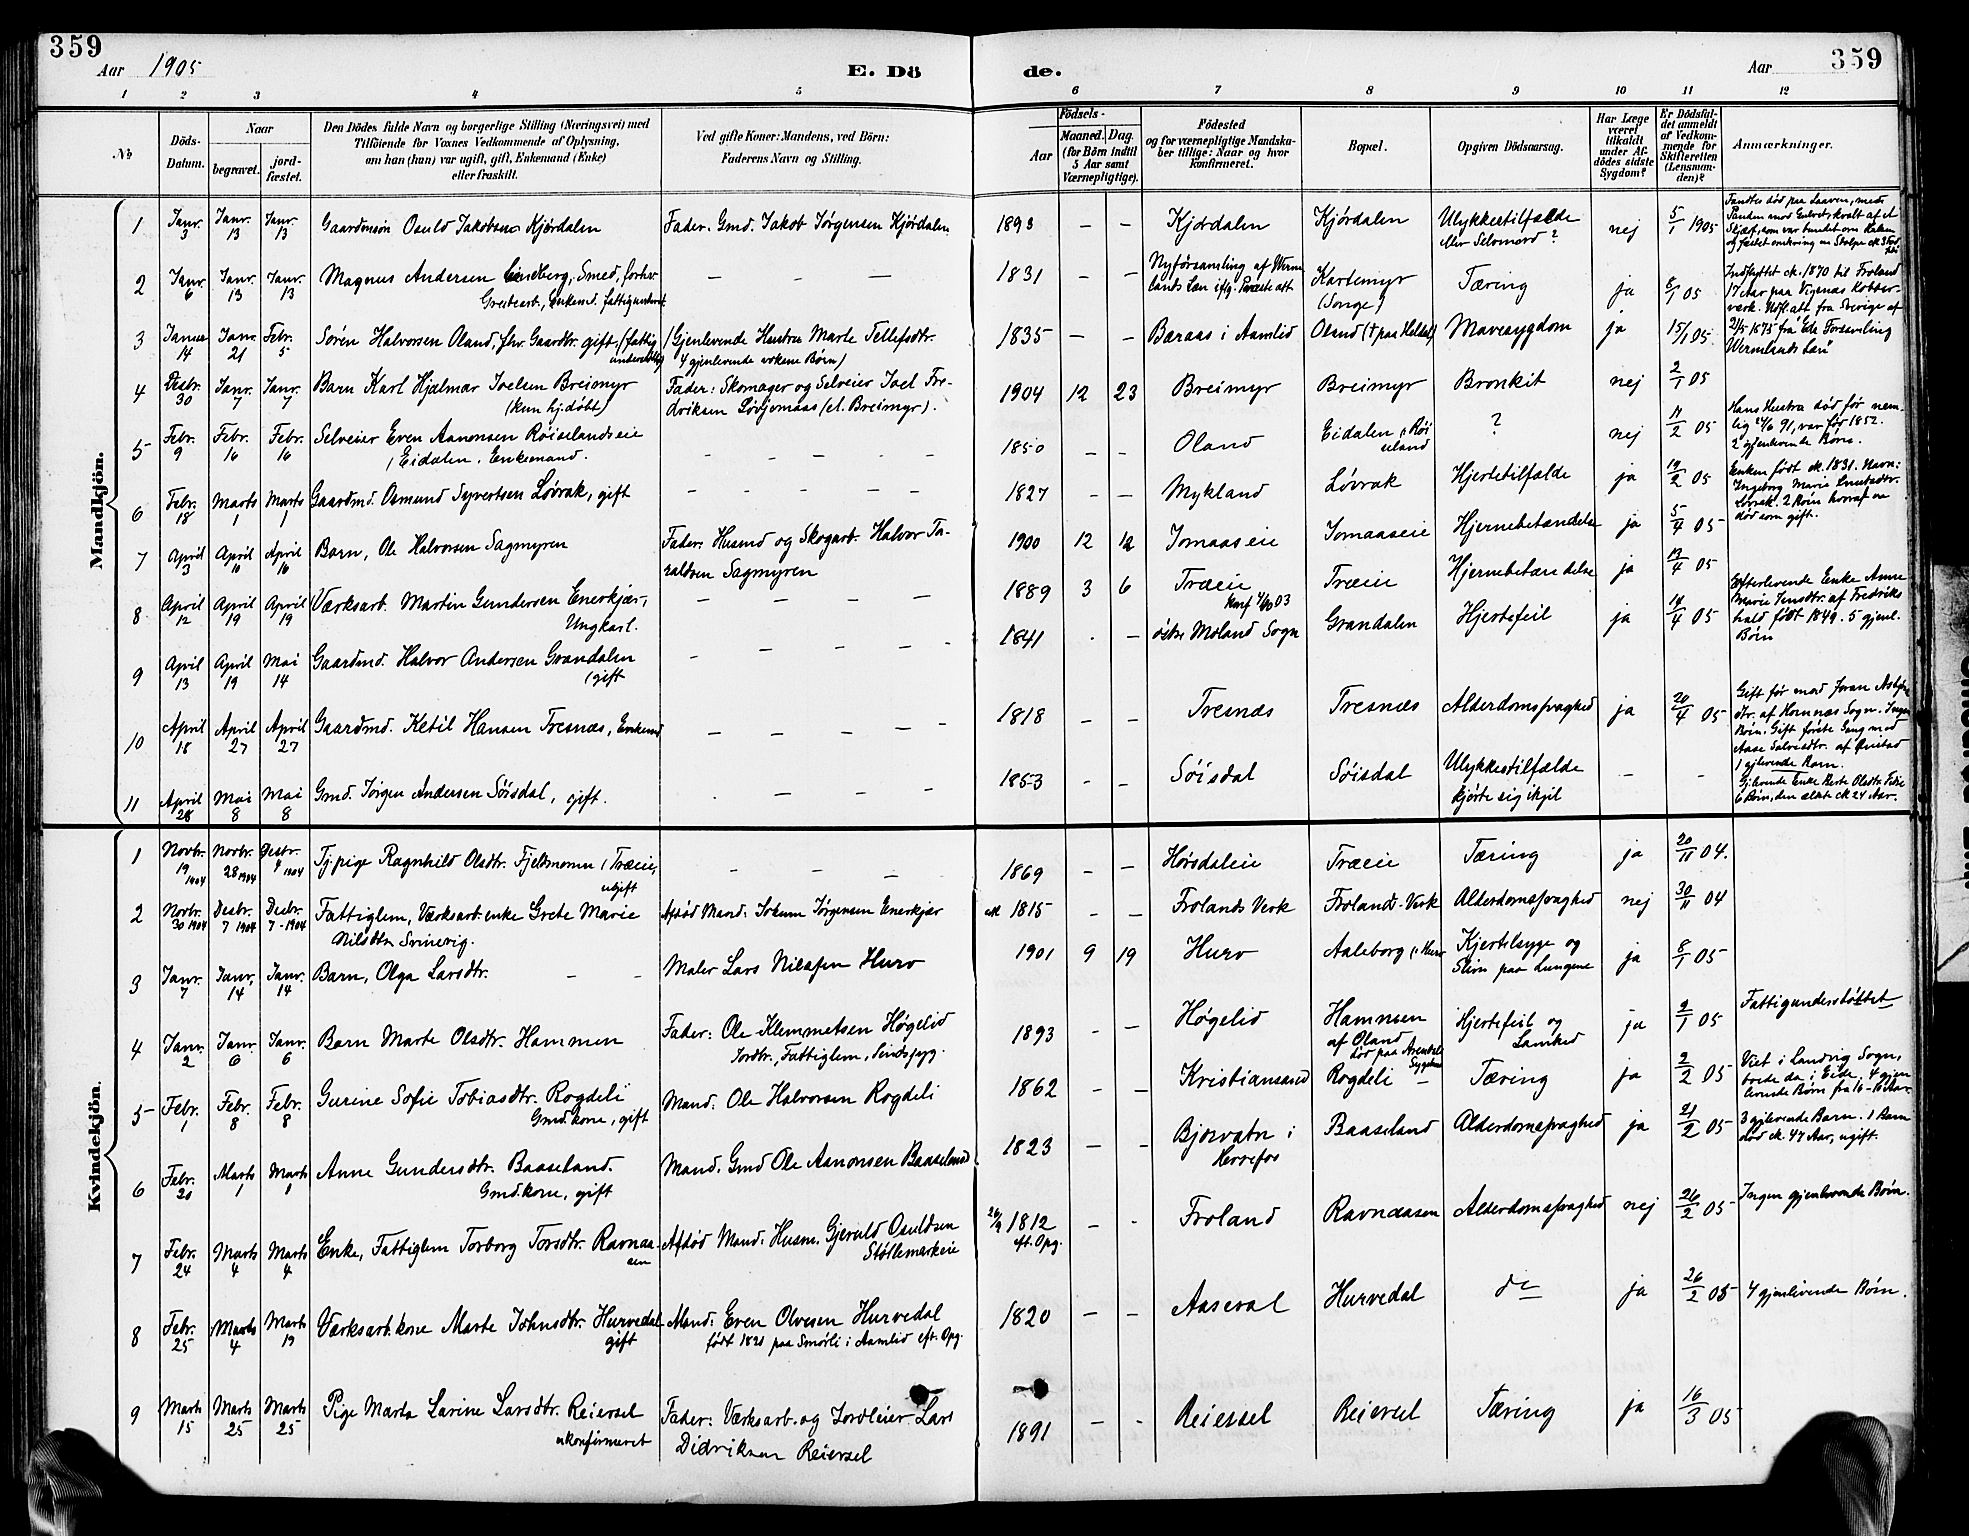 359
Aar 1905
E. Dö
de.
Aar
359
1 2 3 4 5 6 7 8 9 10 11 12
№
Döds-Datum.
Naar
begravet.
jord-fæstet.
Den Dödes fulde Navn og borgerlige Stilling (Næringsvei) med
Tilföiende for Voxnes Vedkommende af Oplysning,
om han (hun) var ugift, gift, Enkemand (Enke)
eller fraskilt.
Ved gifte Koner: Mandens, ved Börn:
Faderens Navn og Stilling.
Födsels-
Aar
Maaned. Dag.
(for Börn indtil
5 Aar samt
Værnepligtige).
Födested
og for værnepligtige Mandska-
ber tillige: Naar og hvor
konfirmeret.
Bopæl.
Opgiven Dödsaarsag.
Har Læge
været
tilkaldt
under Af-
dödes sidste
Sygdom?
Er Dödsfal-
det anmeldt
af Vedkom-
mende for
Skifteretten
(Lensman-
den)?
Anmærkninger.
Mandkjön.
1 Janr. 3 Janr. 13 Janr. 13 Gaardmsön Osuld Jakobsen Kjördalen Fader: Gmd. Jakob Jörgensen Kjördalen 1893 – – Kjördalen Kjördalen Ulykkestilfælde
eller Selvmord? nej 5/1 1905 Fandtes död paa Laaven, med
Panden mod Gulvet, kvalt af et
Skjærf, som var bundet om Halsen
og fæstet omkring en Stolpe
2 Janr. 6 Janr. 13 Janr. 13 Magnus Andersen Lindberg, Smed, forhv.
Grubearb., Enkemd. fattigunderst. – – – 1831 – – Nyforsamling af Werm-
lands Län iflg. Præsteatt Kartemyr
(Songe) Tæring ja 6/1 05 Indflyttet ck. 1870 til Froland
17 Aar paa Vigenæs Kobber-
værk. Udfl. att. fra Sverige af
2/5 1873 fra Eda Forsamling
Wermlands Län
3 Januar 14 Janr. 21 Febr. 5 Sören Halvorsen Oland, fhv. Gaardbr. gift (fattig
understöttet) (Gjenlevende Hustru Marte Tellefsdtr.
4 gjenlevende voksne Börn) 1835 – – Baraas i Aamlid Oland Mavesygdom ja 15/1 05
4 Desbr. 30 Janr. 7 Janr. 7 Barn Karl Hjalmar Joelsen Breimyr
(kun hj. döbt) Fader: Skomager og Selveier Joel Fre-
driksen Lövjomaas (el. Breimyr). 1904 12 23 Breimyr Breimyr Bronkit nej 2/1 05
5 Febr. 9 Febr. 16 Febr. 16 Selveier Even Aanonsen Röiselandseie
(Eidalen. Enkemand. – – – – 1850 – – Oland Eidalen (: Röi
seland ? nej 11/2 05 Hans Hustru död för nem-
lig 21/6 91, var föd 1852.
2 gjenlevende Börn.
6 Febr. 18 Marts 1 Marts 1 Gaardmd. Osmund Syvertsen Lövrak, gift – – – – 1827 – – Mykland Lövrak Hjertetilfælde ja 19/2 05 Enken födt ck. 1831. Navn:
Ingeborg Marie Knutsdtr.
Lövrak. 2 Börn hvoraf en
död som gift.
7 April 3 April 16 April 16 Barn, Ole Halvorsen Sagmyren Fader: Husmd og Skogarb. Halvor Ta-
raldsen Sagmyren 1900 12 12 Jomaaseie Jomaaseie Hjernebetændelse ja 5/4 05
8 April 12 April 19 April 19 Værksarb. Martin Gundersen Enerkjær,
Ungkarl. – – – – 1889 3 6 Træeie
Knf 4/10 03 Træeie Hjernebetændelse ja 13/4 05
9 April 13 April 19 Mai 14 Gaardmd. Halvor Andersen Grandalen
(gift – – – – 1841 . – östre Moland Sogn Grandalen Hjertefeil ja 14/4 05 Efterlevende Enke Anne
Marie Jensdtr. af Fredriks
hald födt 1849. 5 gjenl.
Börn
10 April 18 April 27 April 27 Gaardmd. Ketil Hansen Tresnæs, Enkemd – – – – 1818 – – Tresnæs Tresnæs Alderdomssvaghed ja 20/4 05 Gift för med Joran Asbjörns
dtr. af Hornnæs Sogn. Ingen
Börn. Gift förste Gang med
Aase Salvesdtr. af Öiestad
1 gjlevende Barn.
11 April 28 Mai 8 Mai 8 Gmd. Jörgen Andersen Söisdal, gift. . – – – 1853 – – Söisdal Söisdal Ulykkestilfælde
kjörte sig ihjel – – Gjlevende Enke Berte Olsdtr.
6 Börn, den ældste ck 24 Aar.
Kvindekjön.
1 Novbr. 19 1904 Novbr. 28 1904 Desbr. 4 1904 Tj.pige Ragnhild Olsdtr. Fjelmomen (Træeie,
ugift – – – 1869 – – Hörsdaleie Træeie Tæring ja 20/11 04.
2 Novbr. 30 1904 Desbr. 7 1904 Desbr. 7 - 1904 Fattiglem, Værksarb.enke Grete Marie
Nilsdtr Svinevig. Afdöd Mand: Jokum Jörgensen Enerkjær ck 1815 – – Frolands Verk Frolands Verk Alderdomssvaghed nej 30/11 04
3 Janr. 7 Janr. 14 Janr. 14 Barn, Olga Larsdtr. – – Maler Lars Nilssen Hurv 1901 9 19 Hurv Aaleborg (: Hurv Kjertelsyge og
Slim paa Lungene ja 8/1 05
4 Janr. 2 Janr. 6 Janr. 6 Barn Marte Olsdtr. Hammen Fader: Ole Klemmetsen Högelid
Jordbr., Fattiglem, Sindssyg. 1893 – – Högelid Hammen
af Oland
död paa Arendals
Sygehus Hjertefeil og
Lamhed ja 2/1 05 Fattigunderstöttet
5 Febr. 1 Febr. 8 Febr. 8 Gurine Sofie Tobiasdtr. Rogdeli
Gmd.kone, gift Mand: Ole Halvorsen Rogdeli 1862 – – Kristianssand Rogdeli – Tæring ja 2/2 05 Viet i Landvig Sogn,
boede da i Eide. 4 gjen
levende Börn fra
6 Febr. 20 Marts 1 Marts 1 Anne Gundersdtr. Baaseland.
Gmd.kone, gift Mand: Gmd Ole Aanonsen Baaseland 1823 – – Bjorvatn i
Herrefos Baaseland Alderdomssvaghed ja 21/2 05 3 gjlevende Barn. 1 Barn
död ck. 47 Aar, ugift.
7 Febr. 24 Marts 4 Marts 4 Enke, Fattiglem Torborg Torsdtr. Ravnaa-
sen Afdöd Mand: Husm. Gjeruld Osuldsen
Stöllemarkeie 26/9 1812
eft. Opg. – – Froland Ravnaasen Alderdomssvaghed nej 26/2 05 Ingen gjenlevende Börn.
8 Febr. 25 Marts 4 Marts 19 Værksarb.kone Marte Johnsdtr. Hurvedal
gift Mand: Even Olvesen Hurvedal
födt 1821 paa Smörli i Aamlid eft. Opg. 1820 – – Aaseral Hurvedal do ja 26/2 05 4 gjenlevende Börn.
9 Marts 15 Marts 25 Marts 25 Pige Marta Larine Larsdtr. Reiersel
ukonfirmeret Fader: Værksarb. og Jordleier Lars
Didriksen Reiersel 1891 – – Reiersel Reiersel Tæring ja 16/3 05